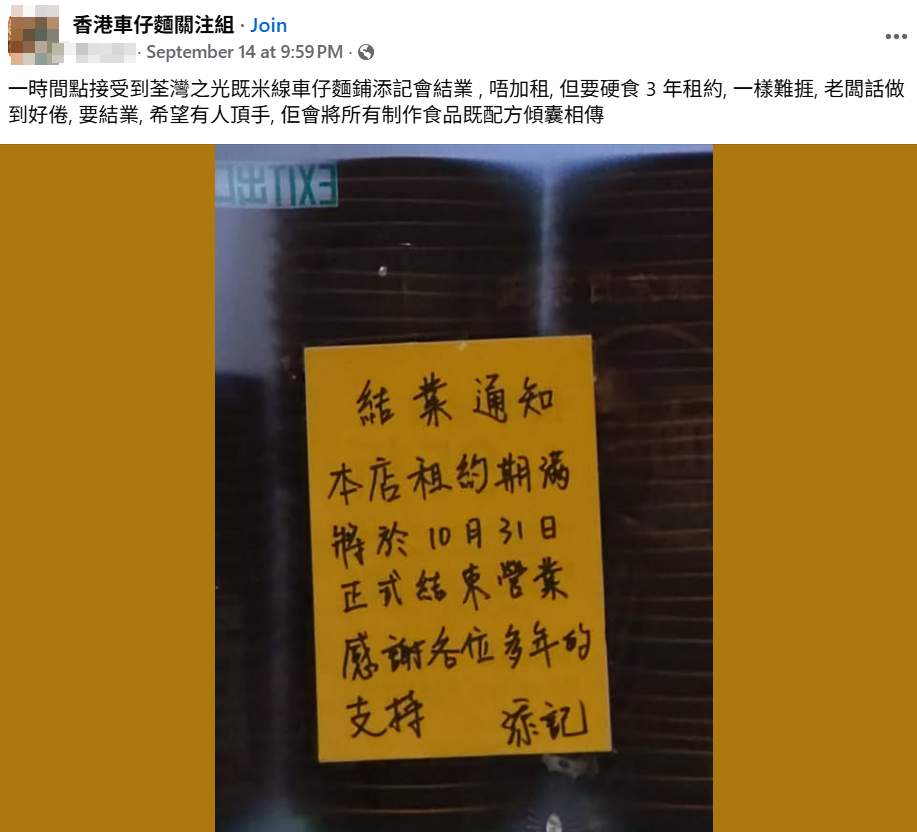 香港車仔麵關注組 · Join
September 14 at 9:59 PM ·
一時間點接受到荃灣之光既米線車仔麵鋪添記會結業 , 唔加租, 但要硬食 3 年租約, 一樣難捱, 老闆話做
到好倦, 要結業, 希望有人頂手, 佢會將所有制作食品既配方傾囊相傳
EXIT出口
結業通知
本店租約期滿
將於10月31日
正式結束營業
感謝各位多年的
支持 添記